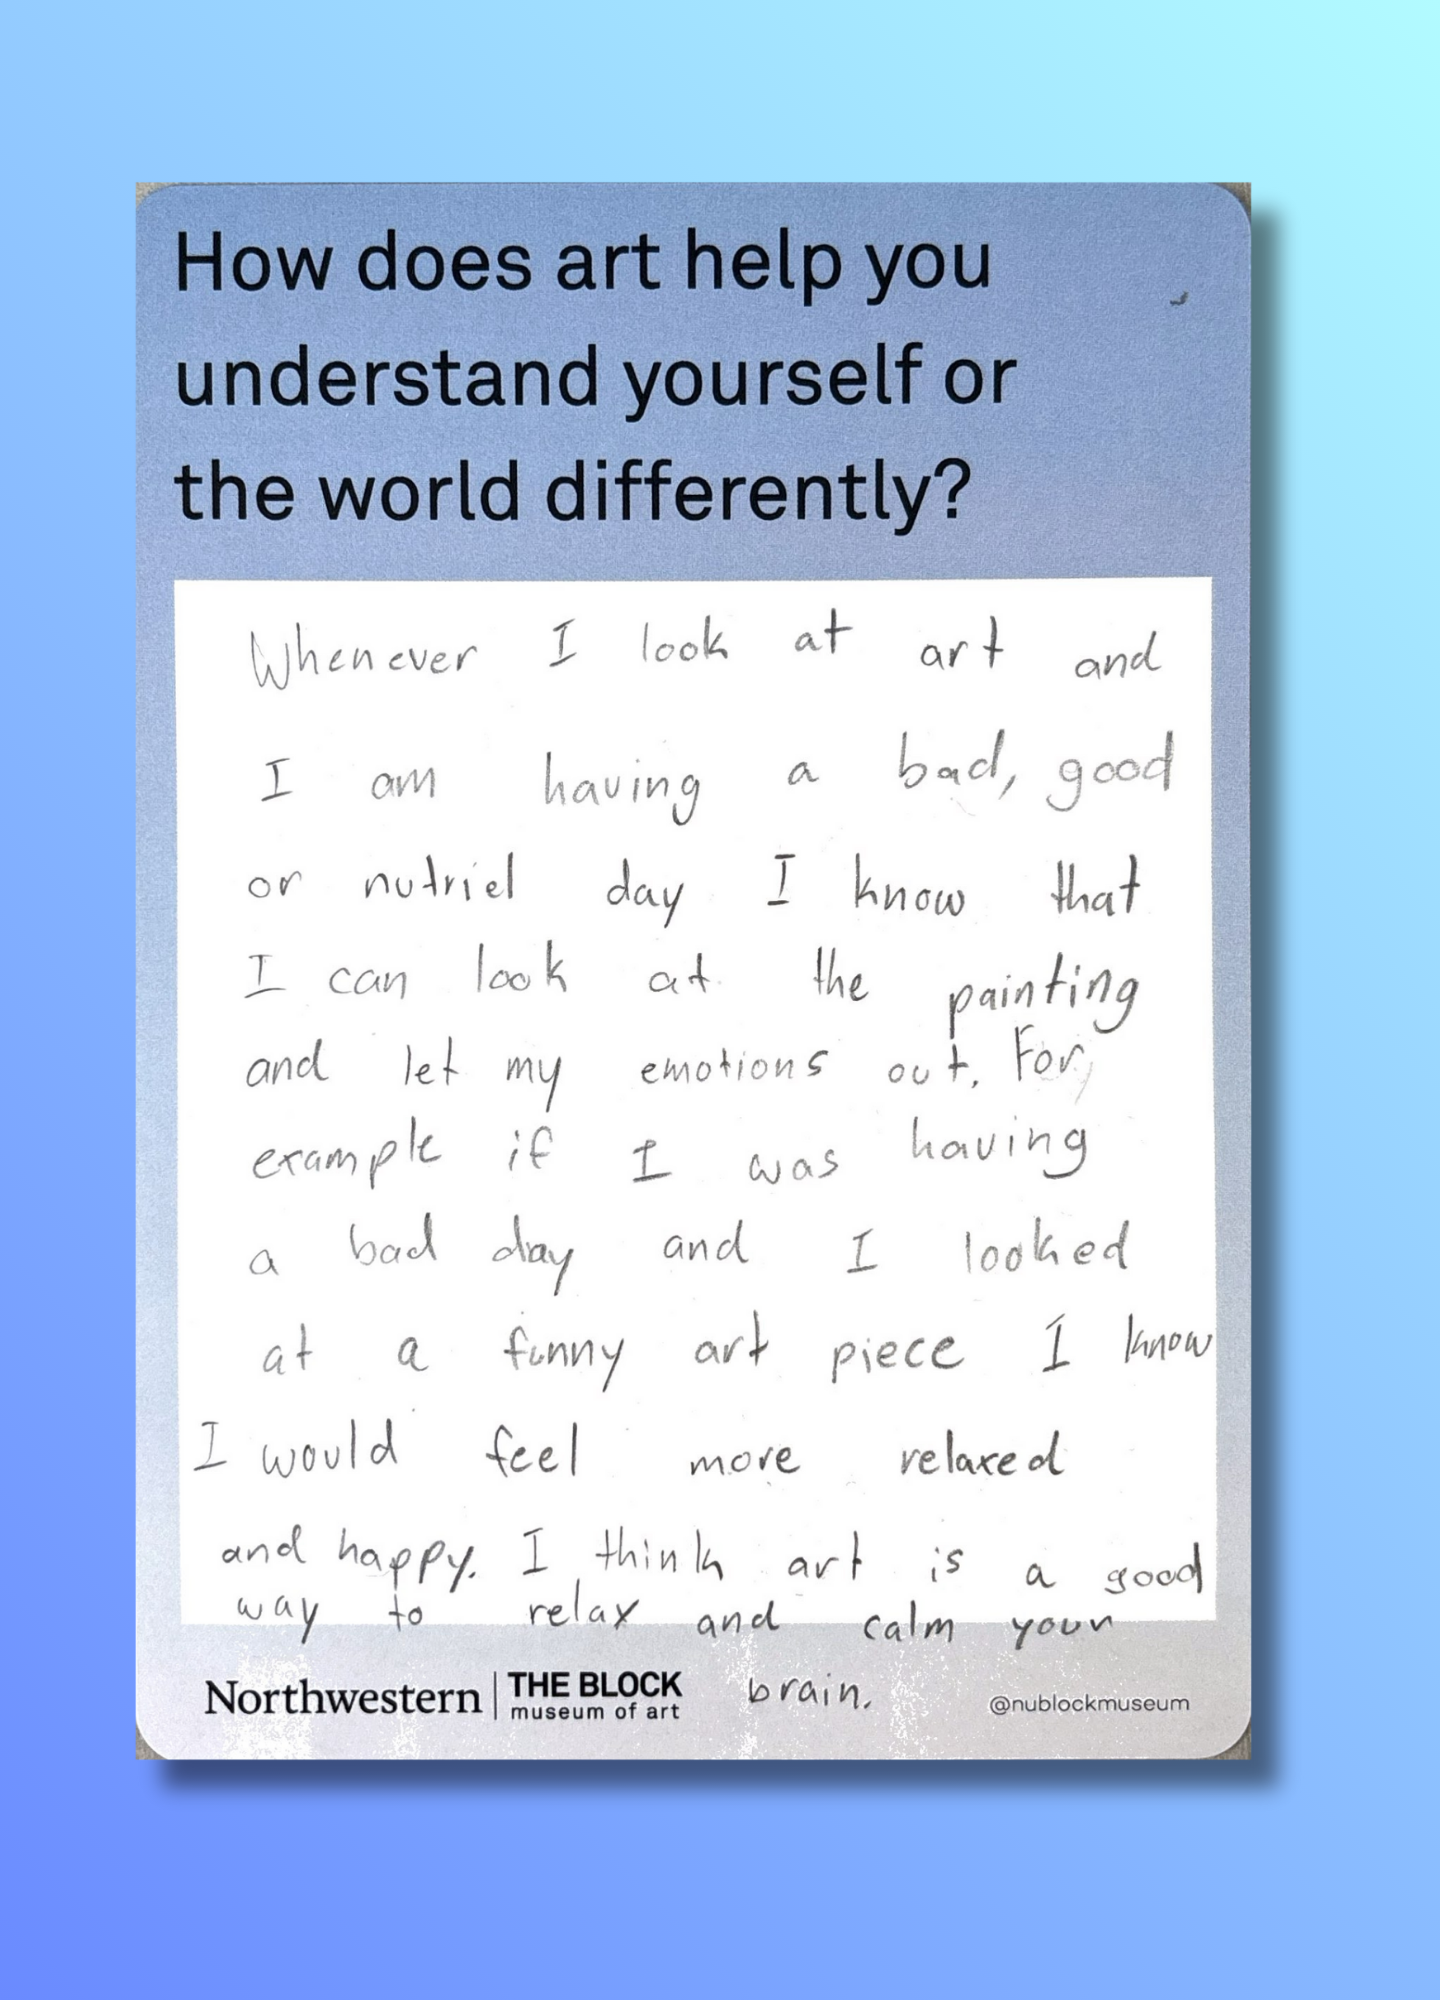 How does art help you
understand yourself or
the world differently?
Whenever I look at art and
I am having a bad, good
or nutriel day I know that
I can look at the painting
and let my emotions out. For,
example if I was having
a bad day and I looked
at a funny art piece I know
I would feel more relaxed
and happy. I think art is a good
way to relax and calm your
brain.
Northwestern | THE BLOCK
museum of art
@nublockmuseum